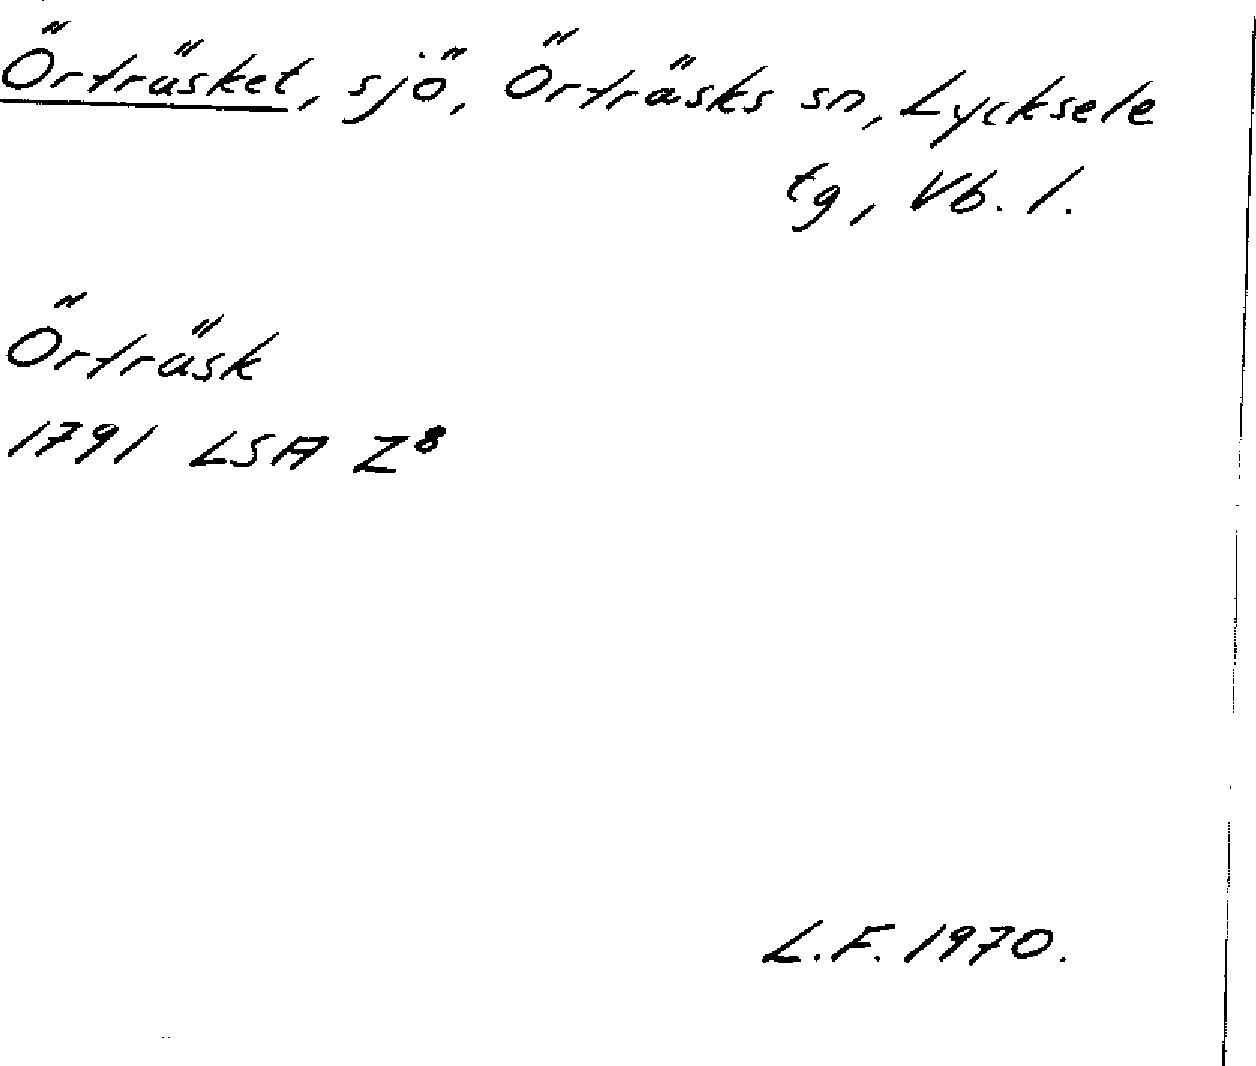 Örträsket, sjö, Örträsks sn, Lycksele
tg, Vb. l.
Örträsk
1791 LSA Z⁸
L.F. 1970.